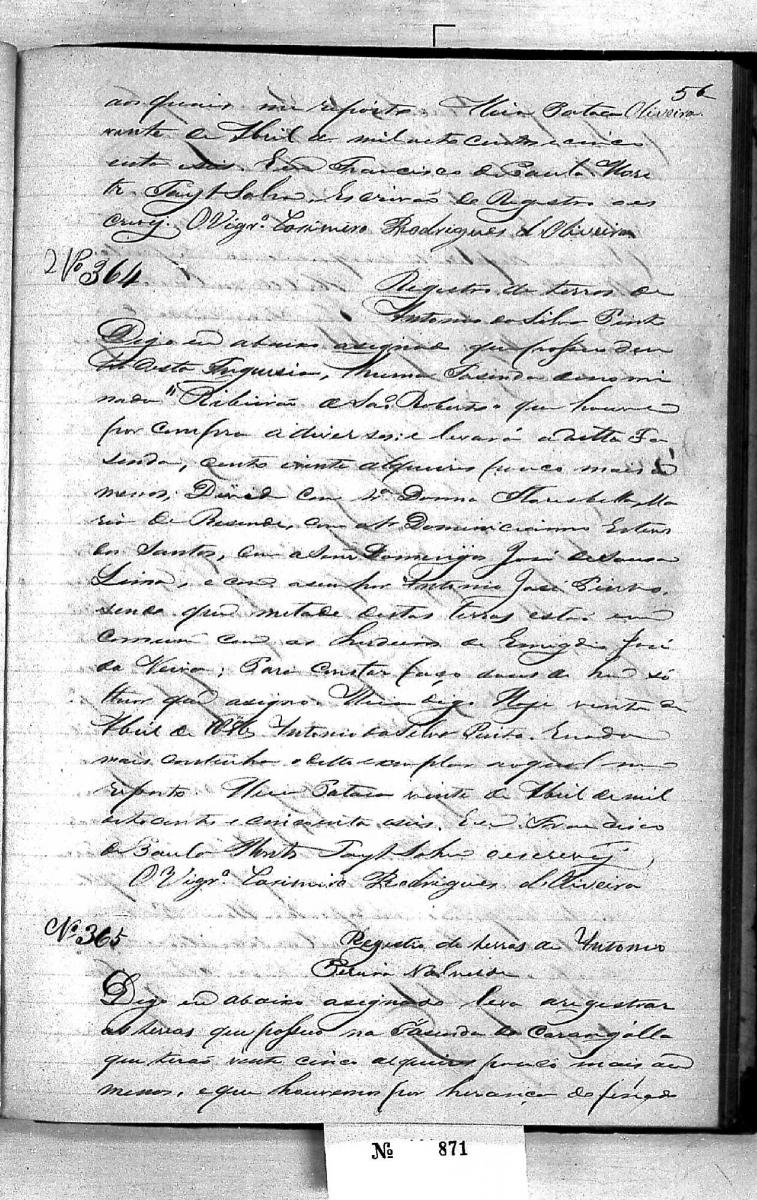 56
Oliveira
aos quais me reporto. Meia Pataca
vinte de Abril de mil oito centos e cinco
enta seis. Eu Francisco de Paula
Escrivão do Registro o es
crevy. O Vigrº Casimiro Rodrigues d'Oliveira
Nº 364
Registro de terras de
Antonio da Silva Pinto
Digo eu abaixo asignado que possuo den
tro desta Freguesia, huma Fasenda denomi
nada "Ribeirão de São Roberto" que houve
por compra a diversos: e levará a ditta Fa
senda, cento vinte alqueires pouco mais ó
menos; Divide com Donna Ma
ria de Resende, com Esteves
dos Santos, com Domingos José de Sousa
Lima, e com a senhor Antonio José Pinto,
sendo que metade destas terras está em
comum com os herdeiros de Emigdio José
da Veiga; Para constar faço dous de hu só
theor que asigno. Meia digo Hoje vinte de
Abril de 1856 Antonio da Silva Pinto. E nada
mais continha o ditto exemplar aoqual me
reporto. Meia Pataca vinte de Abril de mil
oito cento e cincoenta seis. Eu Francisco
de Paula o escrevy
O Vigrº. Casimiro Rodrigues d'Oliveira
Nº 365
Registro de terras de Antonio
Pereira Valverde
Digo eu abaixo asignado leva aregistrar
as terras que possuo na Fasenda do Carangólla
que terão vinte cinco alqueires pouco mais ou
menos, e que houvemos por herança do finado
№ 871